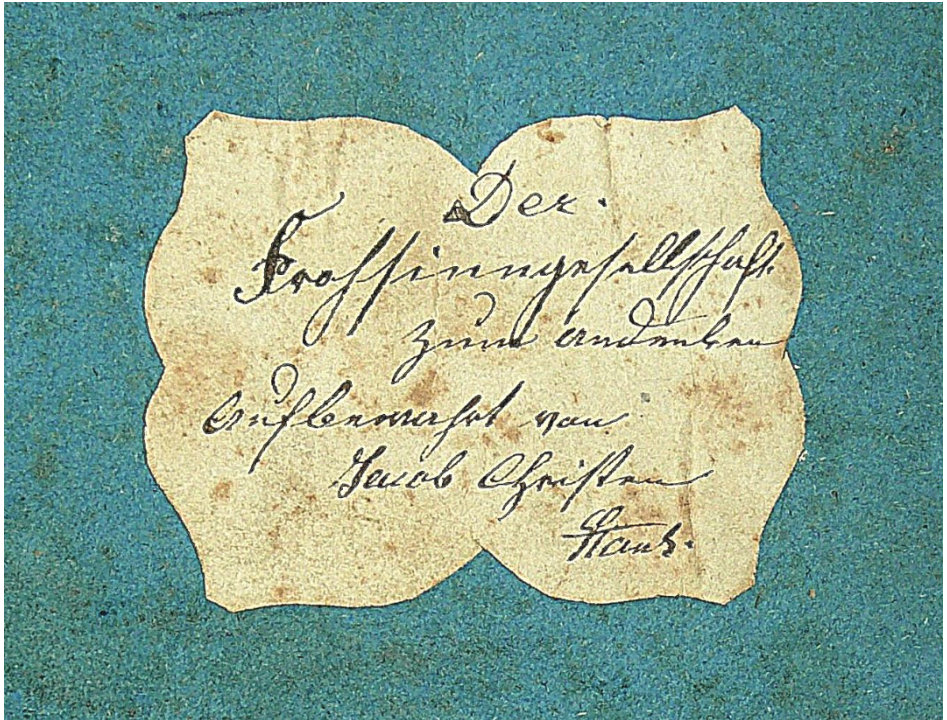 Der.
Frohsinngesellschaft
zum andenken
Aufbewahrt von
Jacob Christen